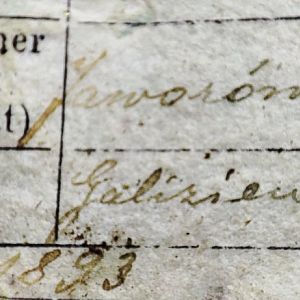 ner
Jaworów
t)
Galizien
1893